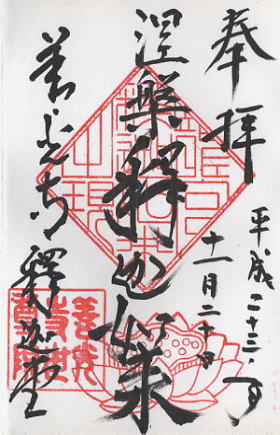 奉拝
平成二十三年
十一月二十日
涅槃釋迦如来
善光寺 釋迦堂
善光
寺世
尊院